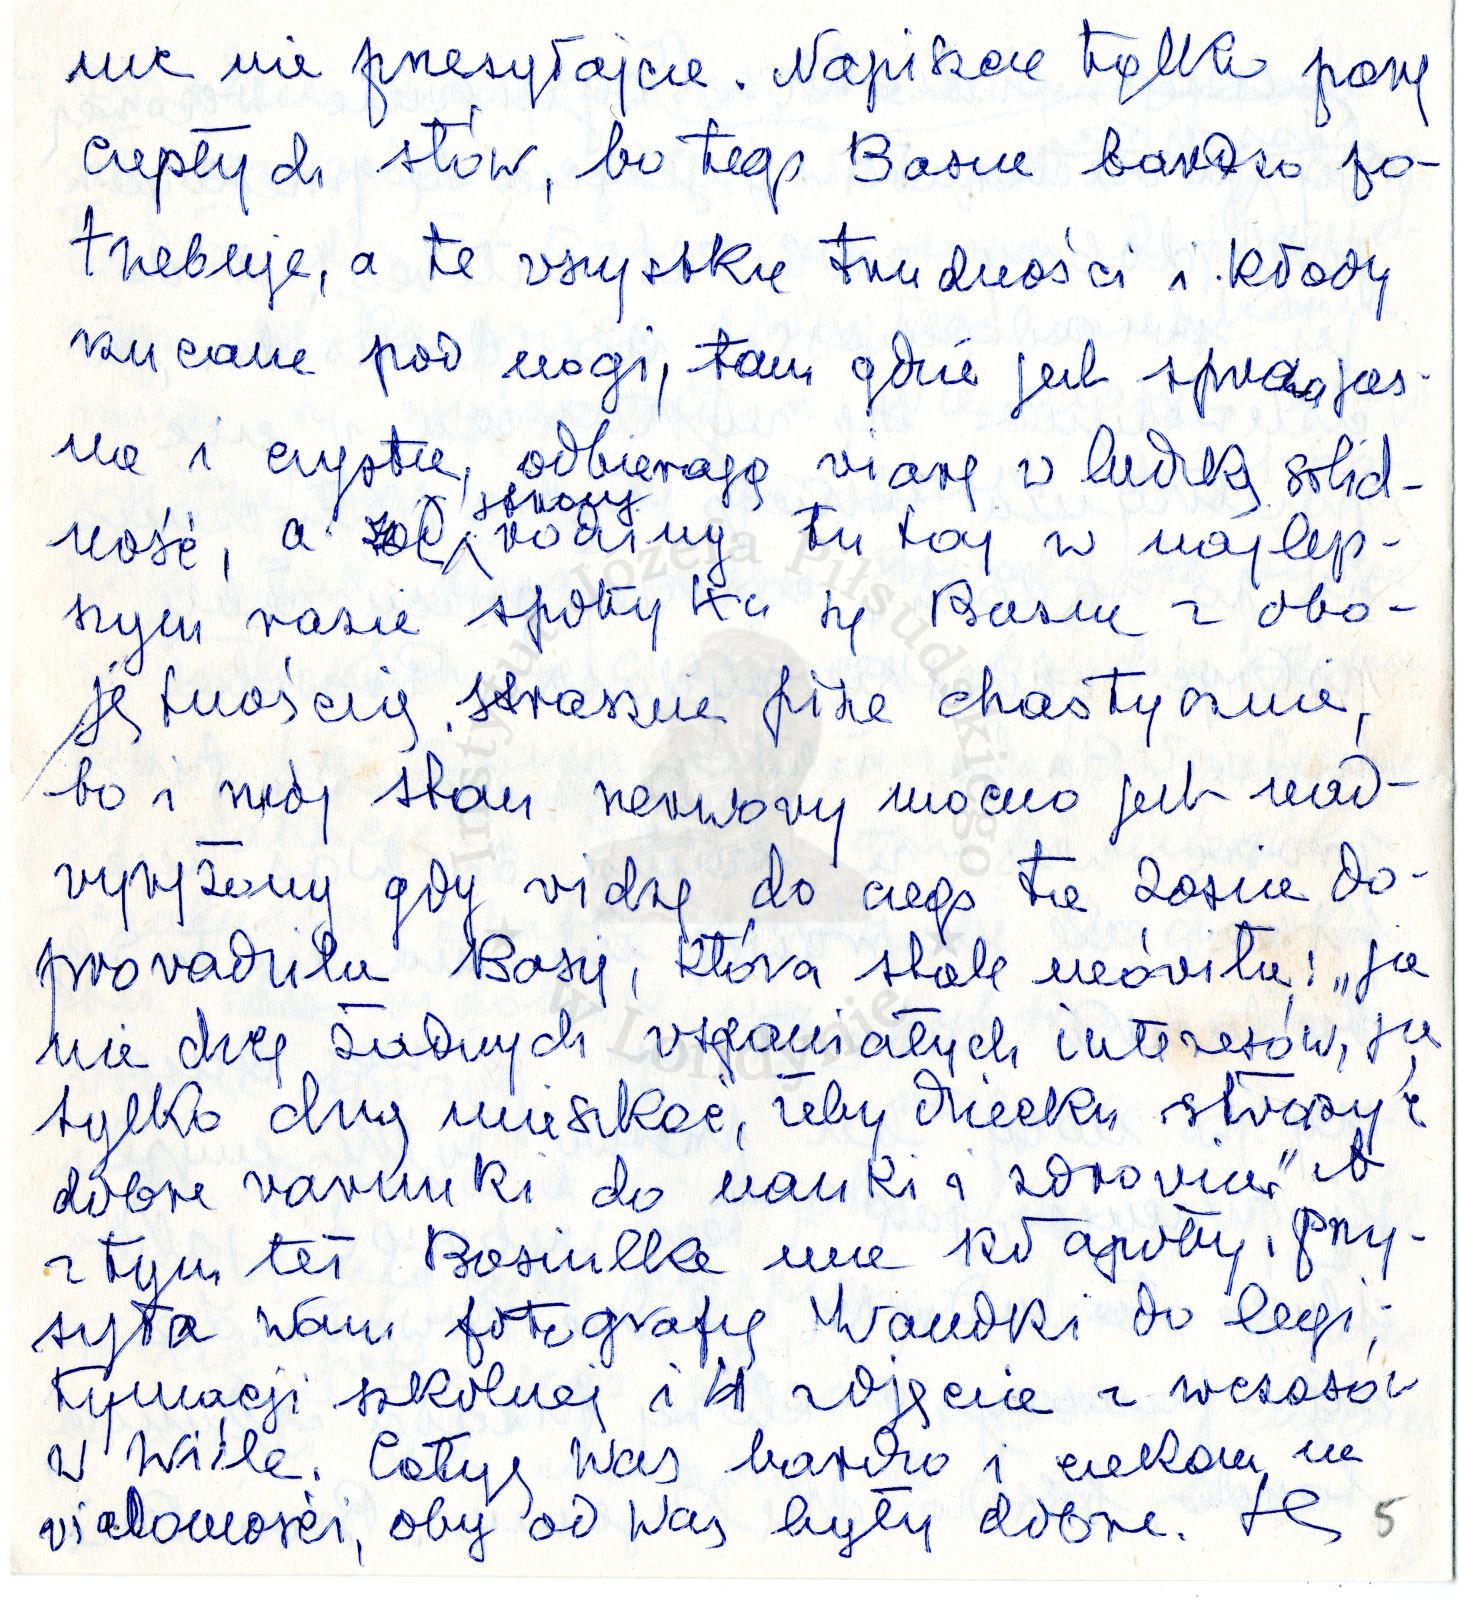 nic nie przesyłajcie. Napiszcie tylko parę
ciepłych słów, bo tego Basie bardzo po-
trzebuje, a te wszystkie trudności i kłody
rzucane pod nogi, tam gdzie jest sprawa jas-
na i czysta, odbierają wiarę w ludzką solid-
ność, a ze strony rodziny tutaj w najlep-
szym razie spotyka się Basia z obo-
jętnością. Strasznie piszę chaotycznie,
bo i mój stan nerwowy mocno jest nad-
wyrężony gdy widzę do czego ta Zosia do-
prowadziła Basię, która stale mówiła: „ja
nie chcę żadnych wspaniałych interesów, ja
tylko chcę mieszkać, żeby dziecku stworzyć
dobre warunki do nauki i zdrowia." A
z tym też Basiulka ma kłopoty. Przy-
syła Wam fotografię Wandki do legi-
tymacji szkolnej i 4 zdjęcia z wczasów
w Wiśle. Całuję Was bardzo i czekam na
wiadomości, oby od Was były dobre.
5
Instytut Józefa Piłsudskiego
w Londynie